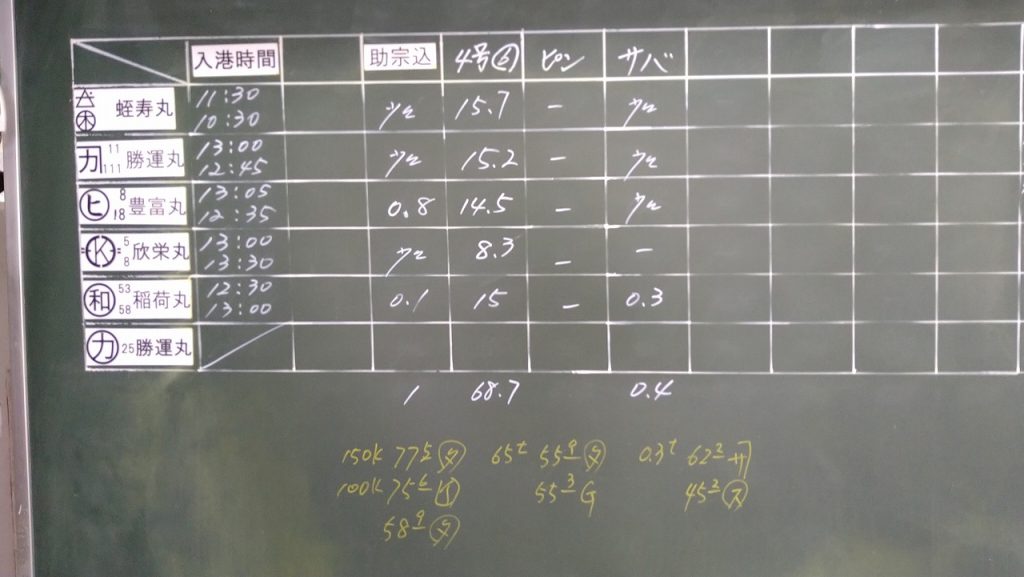 入港時間 助宗込 4号 ピン サバ
11:30
木 蛭寿丸 10:30 少々 15.7 - 少々
カ 11 111 勝運丸 13:00 12:45 少々 15.2 - 少々
ヒ 8 18 豊富丸 13:05 12:35 0.8 14.5 - 少々
K 5 8 欣栄丸 13:00 13:30 少々 8.3 - -
和 53 58 稲荷丸 12:30 13:00 0.1 15 - 0.3
カ 25 勝運丸
1 68.7 0.4
150k 77 タ 65t 55 9 タ 0.3t 62 3 サ
100k 75 6 K 55 3 G 45 3 ス
58 9 タ